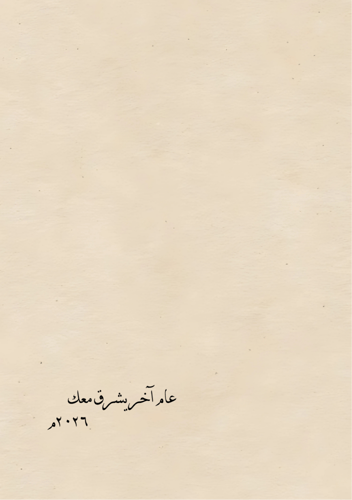 عام آخر يشرق معك
٢٠٢٦م